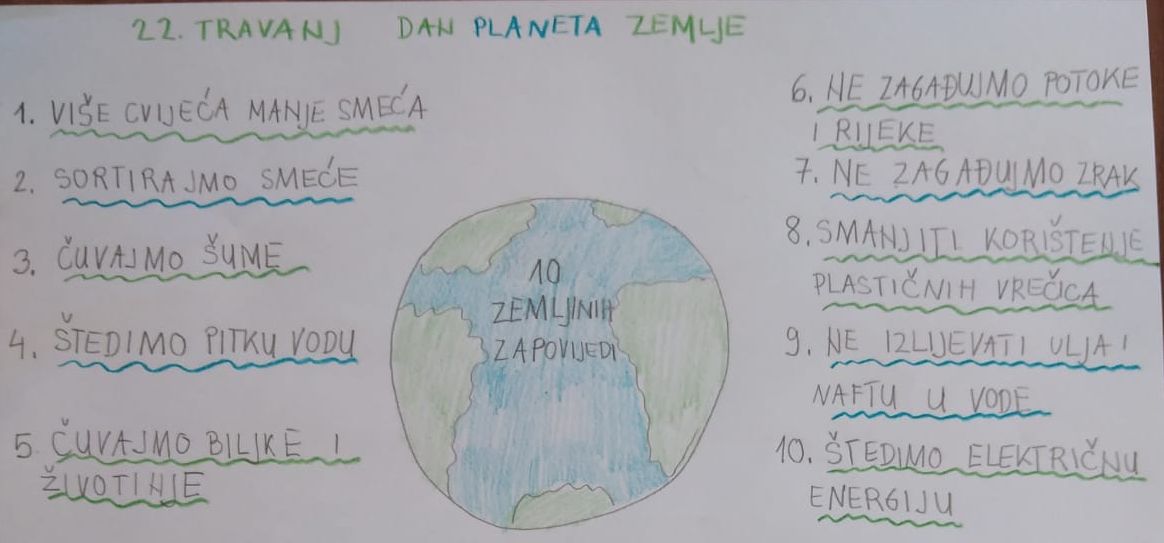 22. TRAVANJ DAN PLANETA ZEMLJE
1. VIŠE CVIJEĆA MANJE SMEĆA
2. SORTIRAJMO SMEĆE
3. ČUVAJMO ŠUME
4. ŠTEDIMO PITKU VODU
5. ČUVAJMO BILJKE I
ŽIVOTINJE
10
ZEMLJINIH
ZAPOVIJEDI
6. NE ZAGAĐUJMO POTOKE
I RIJEKE
7. NE ZAGAĐUJMO ZRAK
8. SMANJITI KORIŠTENJE
PLASTIČNIH VREČICA
9. NE IZLIJEVATI ULJA I
NAFTU U VODE
10. ŠTEDIMO ELEKTRIČNU
ENERGIJU